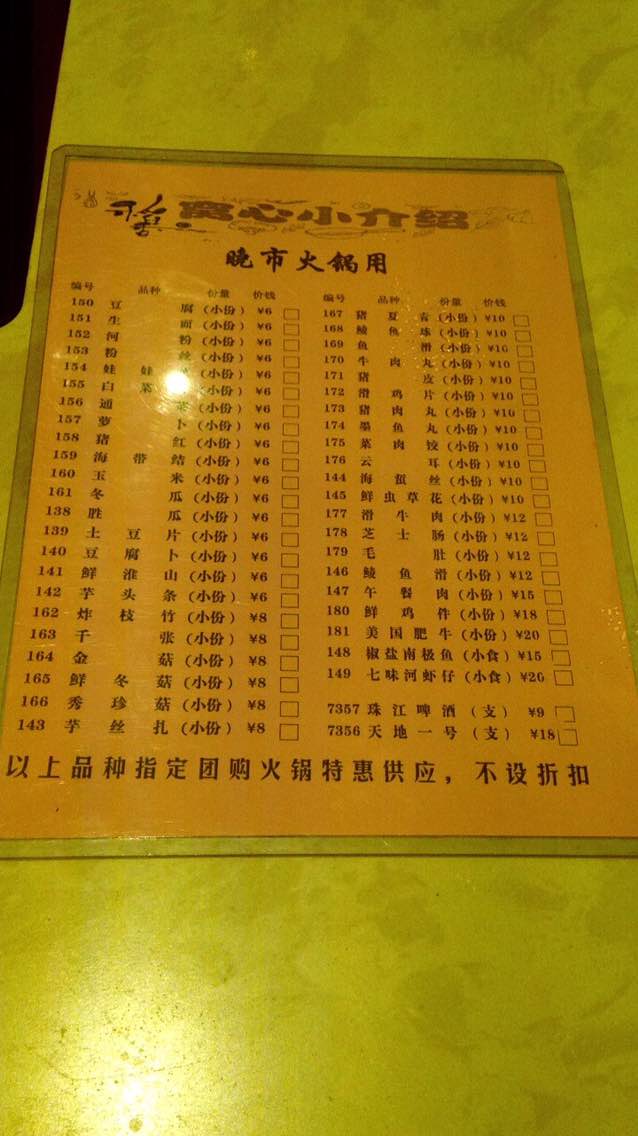 窝心小介绍
晚市火锅用
编号 品种 份量 价钱
150 豆腐(小份) ¥6
151 生面(小份) ¥6
152 河粉(小份) ¥6
153 粉丝(小份) ¥6
154 娃娃(小份) ¥6
155 白菜(小份) ¥6
156 通菜(小份) ¥6
157 萝卜(小份) ¥6
158 猪红(小份) ¥6
159 海带结(小份) ¥6
160 玉米(小份) ¥6
161 冬瓜(小份) ¥6
138 胜瓜(小份) ¥6
139 土豆片(小份) ¥6
140 豆腐卜(小份) ¥6
141 鲜淮山(小份) ¥6
142 芋头条(小份) ¥6
162 炸枝竹(小份) ¥8
163 千张(小份) ¥8
164 金菇(小份) ¥8
165 鲜冬菇(小份) ¥8
166 秀珍菇(小份) ¥8
143 芋丝扎(小份) ¥8
编号 品种 份量 价钱
167 猪夏青(小份) ¥10
168 鲮鱼球(小份) ¥10
169 鱼滑(小份) ¥10
170 牛肉丸(小份) ¥10
171 猪皮(小份) ¥10
172 滑鸡片(小份) ¥10
173 猪肉丸(小份) ¥10
174 墨鱼丸(小份) ¥10
175 菜肉饺(小份) ¥10
176 云耳(小份) ¥10
144 海蜇丝(小份) ¥10
145 鲜虫草花(小份) ¥10
177 滑牛肉(小份) ¥12
178 芝士肠(小份) ¥12
179 毛肚(小份) ¥12
146 鲮鱼滑(小份) ¥12
147 午餐肉(小份) ¥15
180 鲜鸡件(小份) ¥18
181 美国肥牛(小份) ¥20
148 椒盐南极鱼(小食) ¥15
149 七味河虾仔(小食) ¥20
7357 珠江啤酒(支) ¥9
7356 天地一号(支) ¥18
以上品种指定团购火锅特惠供应，不设折扣